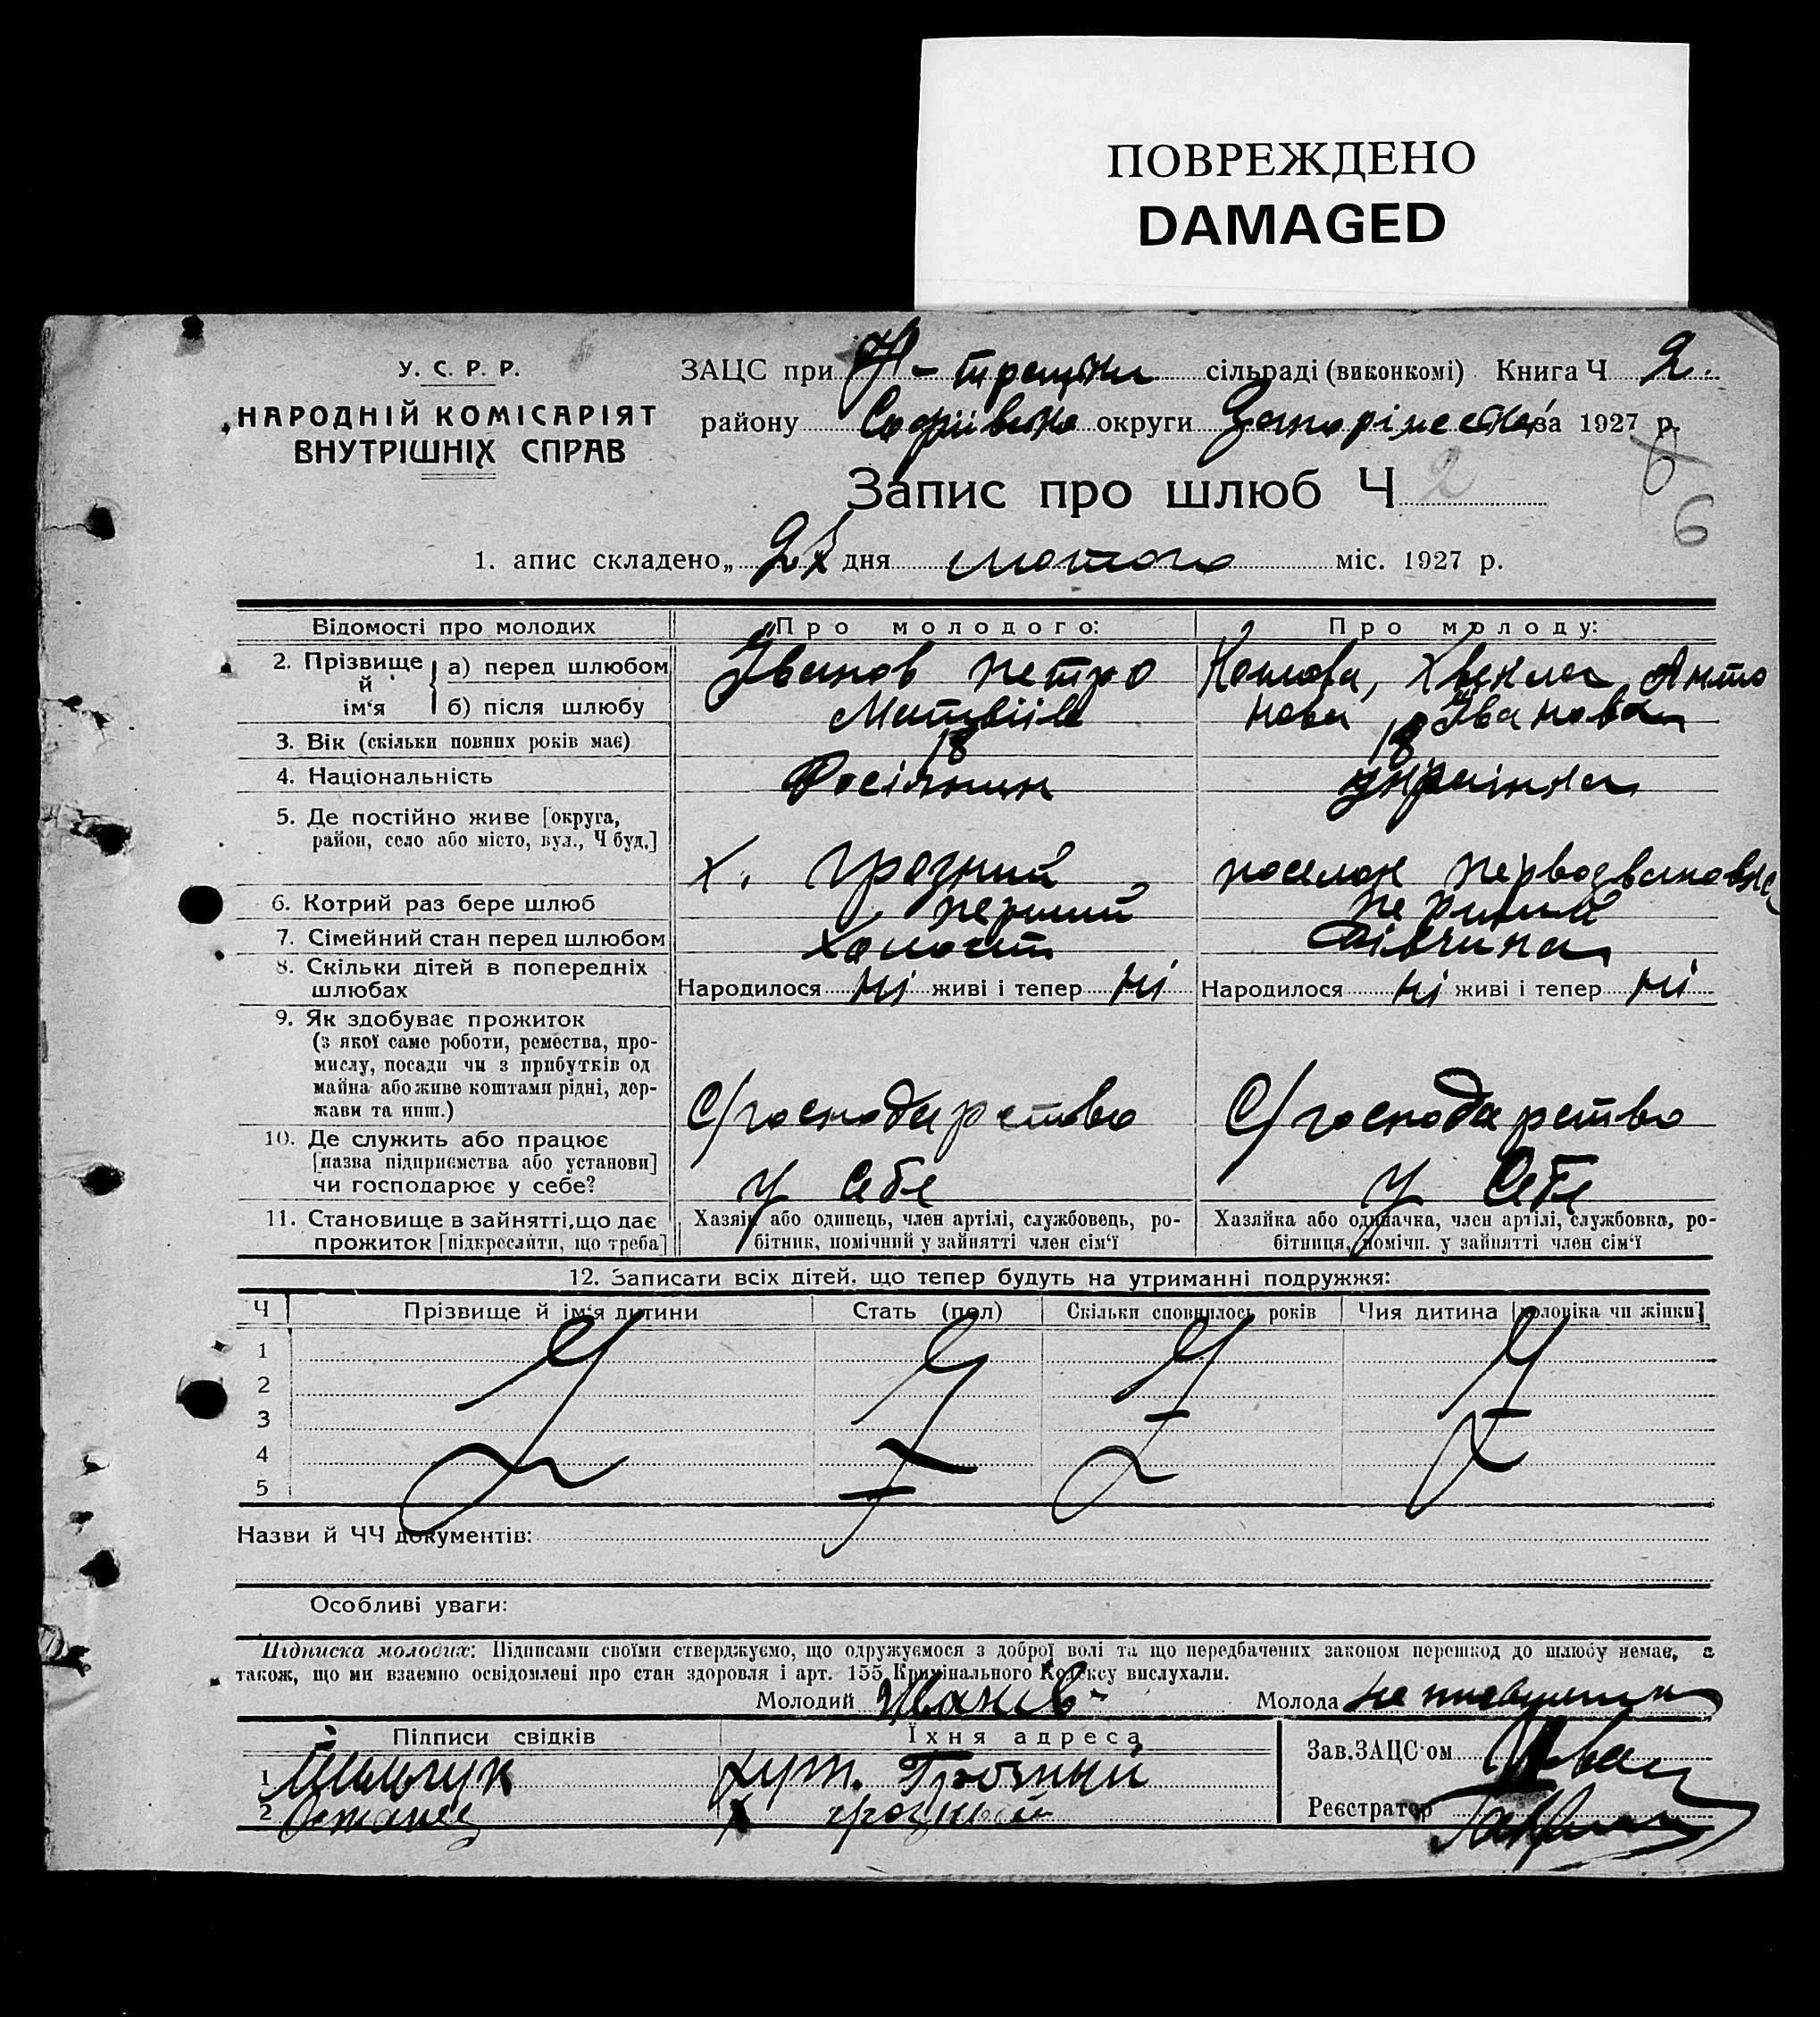 ПОВРЕЖДЕНО
DAMAGED
У. С. Р. Р.
НАРОДНІЙ КОМІСАРІЯТ
ВНУТРІШНІХ СПРАВ
ЗАЦС при сільраді (виконкомі) Книга Ч 2.
району округи за 1927 р.
Запис про шлюб Ч 2
6
1. апис складено „ дня лютого міс. 1927 р.
Відомості про молодих
Про молодого:
Про молоду:
2. Прізвище й ім'я
а) перед шлюбом
б) після шлюбу
Іванов Петро
Матвіів
Анто
нова Іванова
3. Вік (скільки повних років має)
18
18
4. Національність
Росіянин
українка
5. Де постійно живе [округа,
район, село або місто, вул., Ч буд.]
х. Грозний
поселок
6. Котрий раз бере шлюб
перший
перший
7. Сімейний стан перед шлюбом
холост
дівчина
8. Скільки дітей в попередніх
шлюбах
Народилося ні живі і тепер ні
Народилося ні живі і тепер ні
9. Як здобуває прожиток
(з якої саме роботи, ремества, про-
мислу, посади чи з прибутків од
майна або живе коштами рідні, дер-
жави та инш.)
С/господарство
С/господарство
10. Де служить або працює
[назва підприємства або установи]
чи господарює у себе?
у себе
у себе
11. Становище в зайнятті, що дає
прожиток [підкреслити, що треба]
Хазяїн або одинець, член артілі, службовець, ро-
бітник, помічний у зайнятті член сім'ї
Хазяйка або одиначка, член артілі, службовка, ро-
бітниця, помічн. у зайнятті член сім'ї
12. Записати всіх дітей, що тепер будуть на утриманні подружжя:
Ч Прізвище й ім'я дитини Стать (пол) Скільки сповнилось років Чия дитина [чоловіка чи жінки]
1
2
3
4
5
Назви й ЧЧ документів:
Особливі уваги:
Підписка молодих: Підписами своїми стверджуємо, що одружуємося з доброї волі та що передбачених законом перешкод до шлюбу немає, а
також, що ми взаємно освідомлені про стан здоровля і арт. 155 Кримінального Кодексу вислухали.
Молодий
Молода
Підписи свідків
Їхня адреса
Зав. ЗАЦС'ом
1 хут. Грозный
2 х грозный
Реєстратор